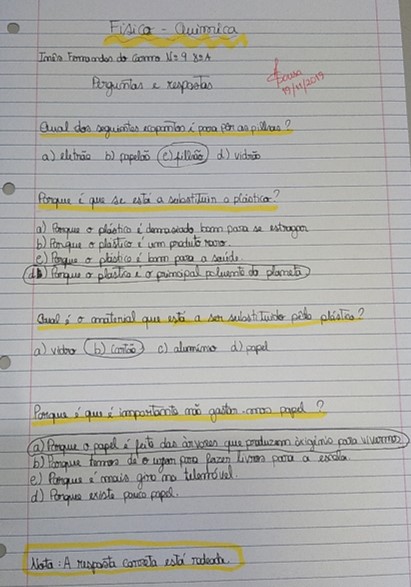 Física - Química
Inês Fernandes do Carmo Nº9 8ºA
Sousa
19/11/2019
Perguntas e respostas
Qual dos seguintes ecopontos é para pôr as pilhas?
a) eletrão b) papelão c) pilhão d) vidrão
Porque é que se está a substituir o plástico?
a) Porque o plástico é demasiado bom para se estragar
b) Porque o plástico é um produto raro.
c) Porque o plástico é bom para a saúde.
d) Porque o plástico é o principal poluente do planeta
Qual é o material que está a ser substituido pelo plástico?
a) vidro b) cartão c) alumínio d) papel
Porque é que é importante não gastar mos papel ?
a) Porque o papel é feito das árvores que produzem oxigénio para vivermos
b) Porque temos de o usar para fazer livros para a escola.
c) Porque é mais giro no telemóvel.
d) Porque existe pouco papel.
Nota: A resposta correta está rodeada.